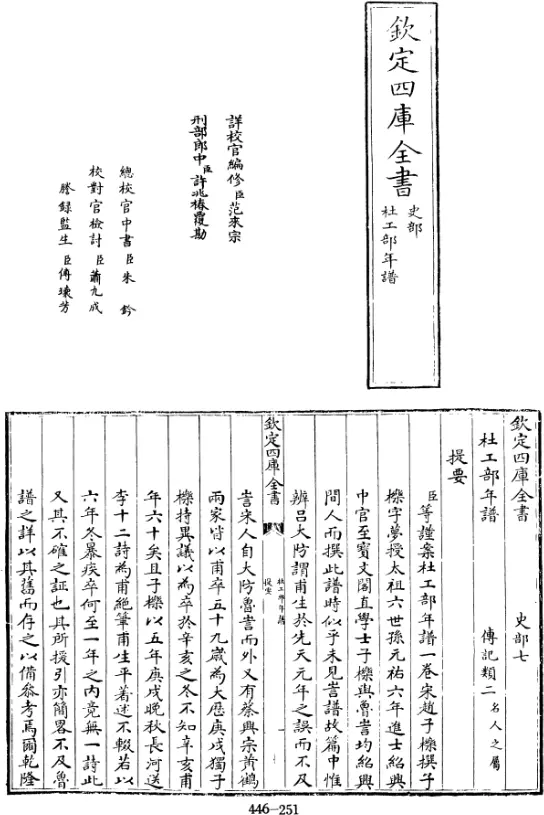 欽定四庫全書
史部
杜工部年譜
詳校官編修臣范來宗
刑部郎中臣許兆椿覆勘
總校官中書臣朱鈐
校對官檢討臣蕭九成
謄錄監生臣傅璟芳
欽定四庫全書 史部七
杜工部年譜 傳記類二名人之屬
提要
臣等謹案杜工部年譜一卷宋趙子櫟撰子
櫟字夢授太祖六世孫元祐六年進士紹興
中官至寶文閣直學士子櫟與魯訔均紹興
間人而撰此譜時似乎未見訔譜故篇中惟
辨呂大防謂甫生於先天元年之誤而不及
欽定四庫全書
杜工部年譜
提要
訔宋人自大防魯訔而外又有蔡興宗黃鶴
兩家皆以甫卒五十九歲為大厯庚戌獨子
櫟持異議以為卒於辛亥之冬不知辛亥甫
年六十矣且子櫟以五年庚戌晚秋長河送
李十二詩為甫絶筆甫生平著述不輟若以
六年冬暴疾卒何至一年之内竟無一詩此
又其不確之証也其所援引亦簡畧不及魯
譜之詳以其舊而存之以備叅考焉爾乾隆
446-251